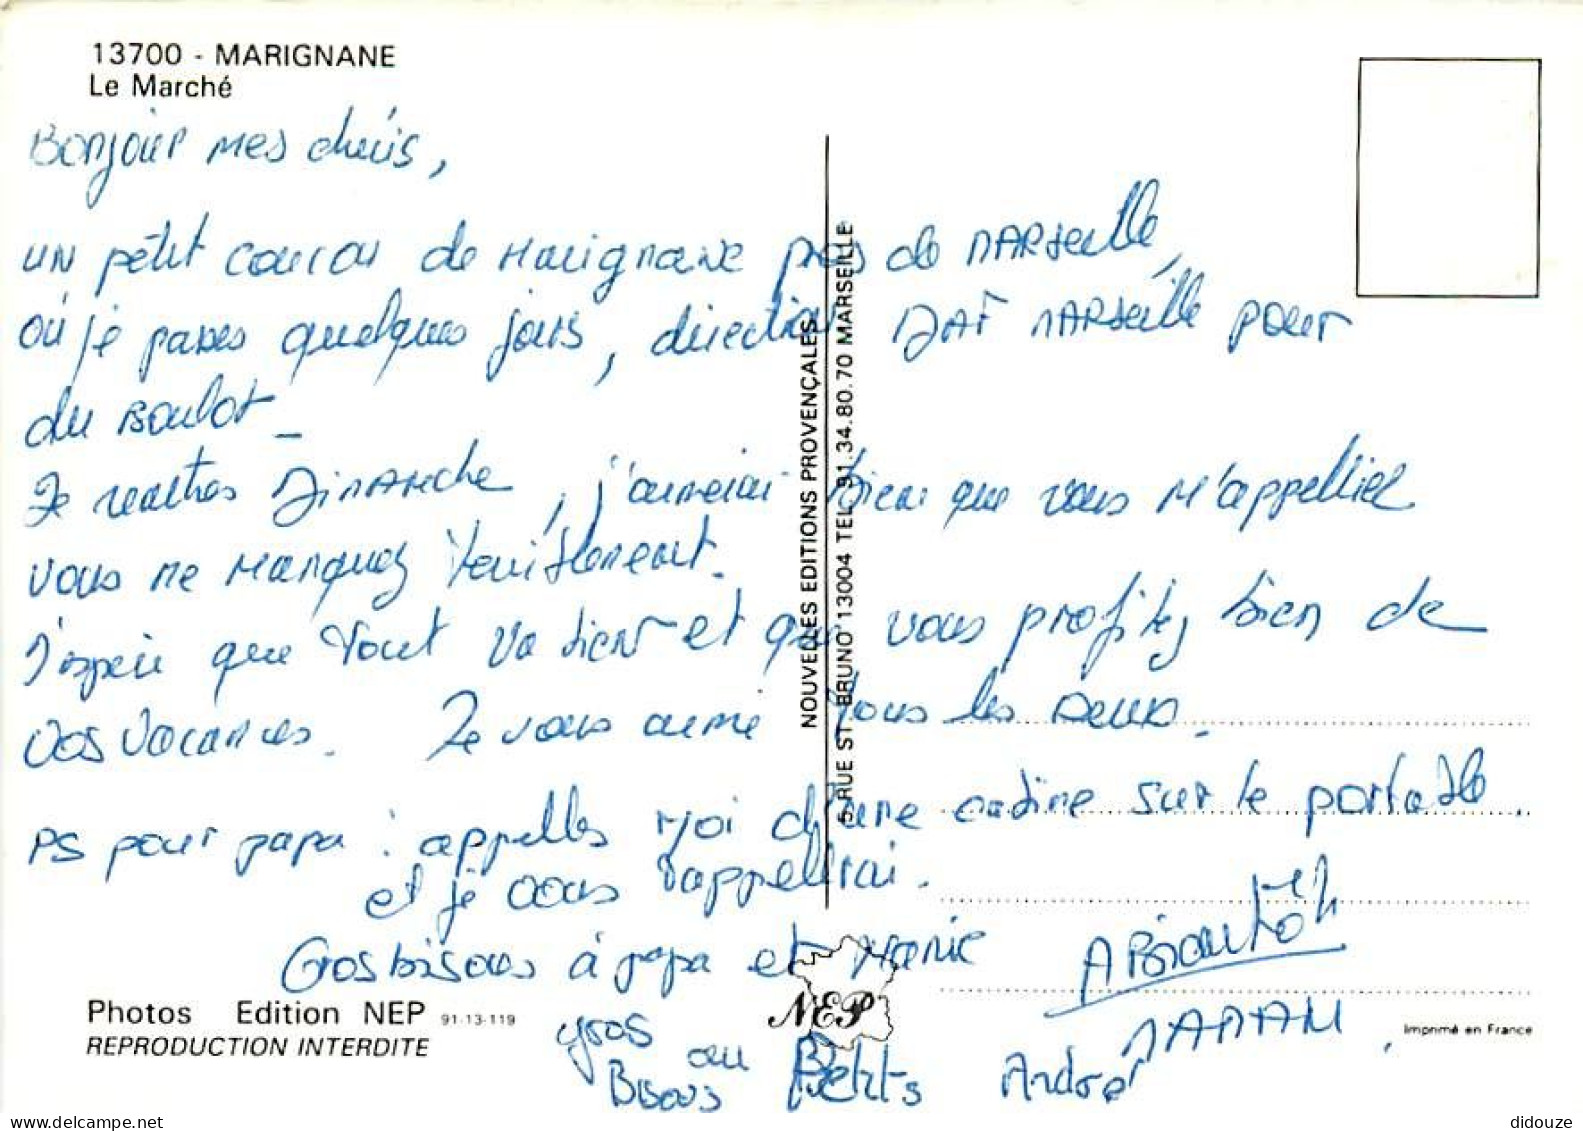 13700 - MARIGNANE
Le Marché
Bonjour mes chéris,
un petit coucou de Marignane près de Marseille,
où je passes quelques jours, direction DAF Marseille pour
du Boulot _
Je rentres Dimanche, j'aimerai bien que vous m'appelliez
vous me manquez terriblement.
J'espère que tout va bien et que vous profitez bien de
vos vacances. Je vous aime tous les deux.
PS pour papa : appelles moi d'une cabine sur le portable.
et je vous rappellerai.
Gros bisous à papa et Mamie
A Bientôt
gros
Bisous au Petits André
MAMAN.
NOUVELLES EDITIONS PROVENÇALES
5 RUE ST BRUNO 13004 TEL 91.34.80.70 MARSEILLE
NEP
Photos Edition NEP 91-13-119
REPRODUCTION INTERDITE
Imprimé en France
didouze